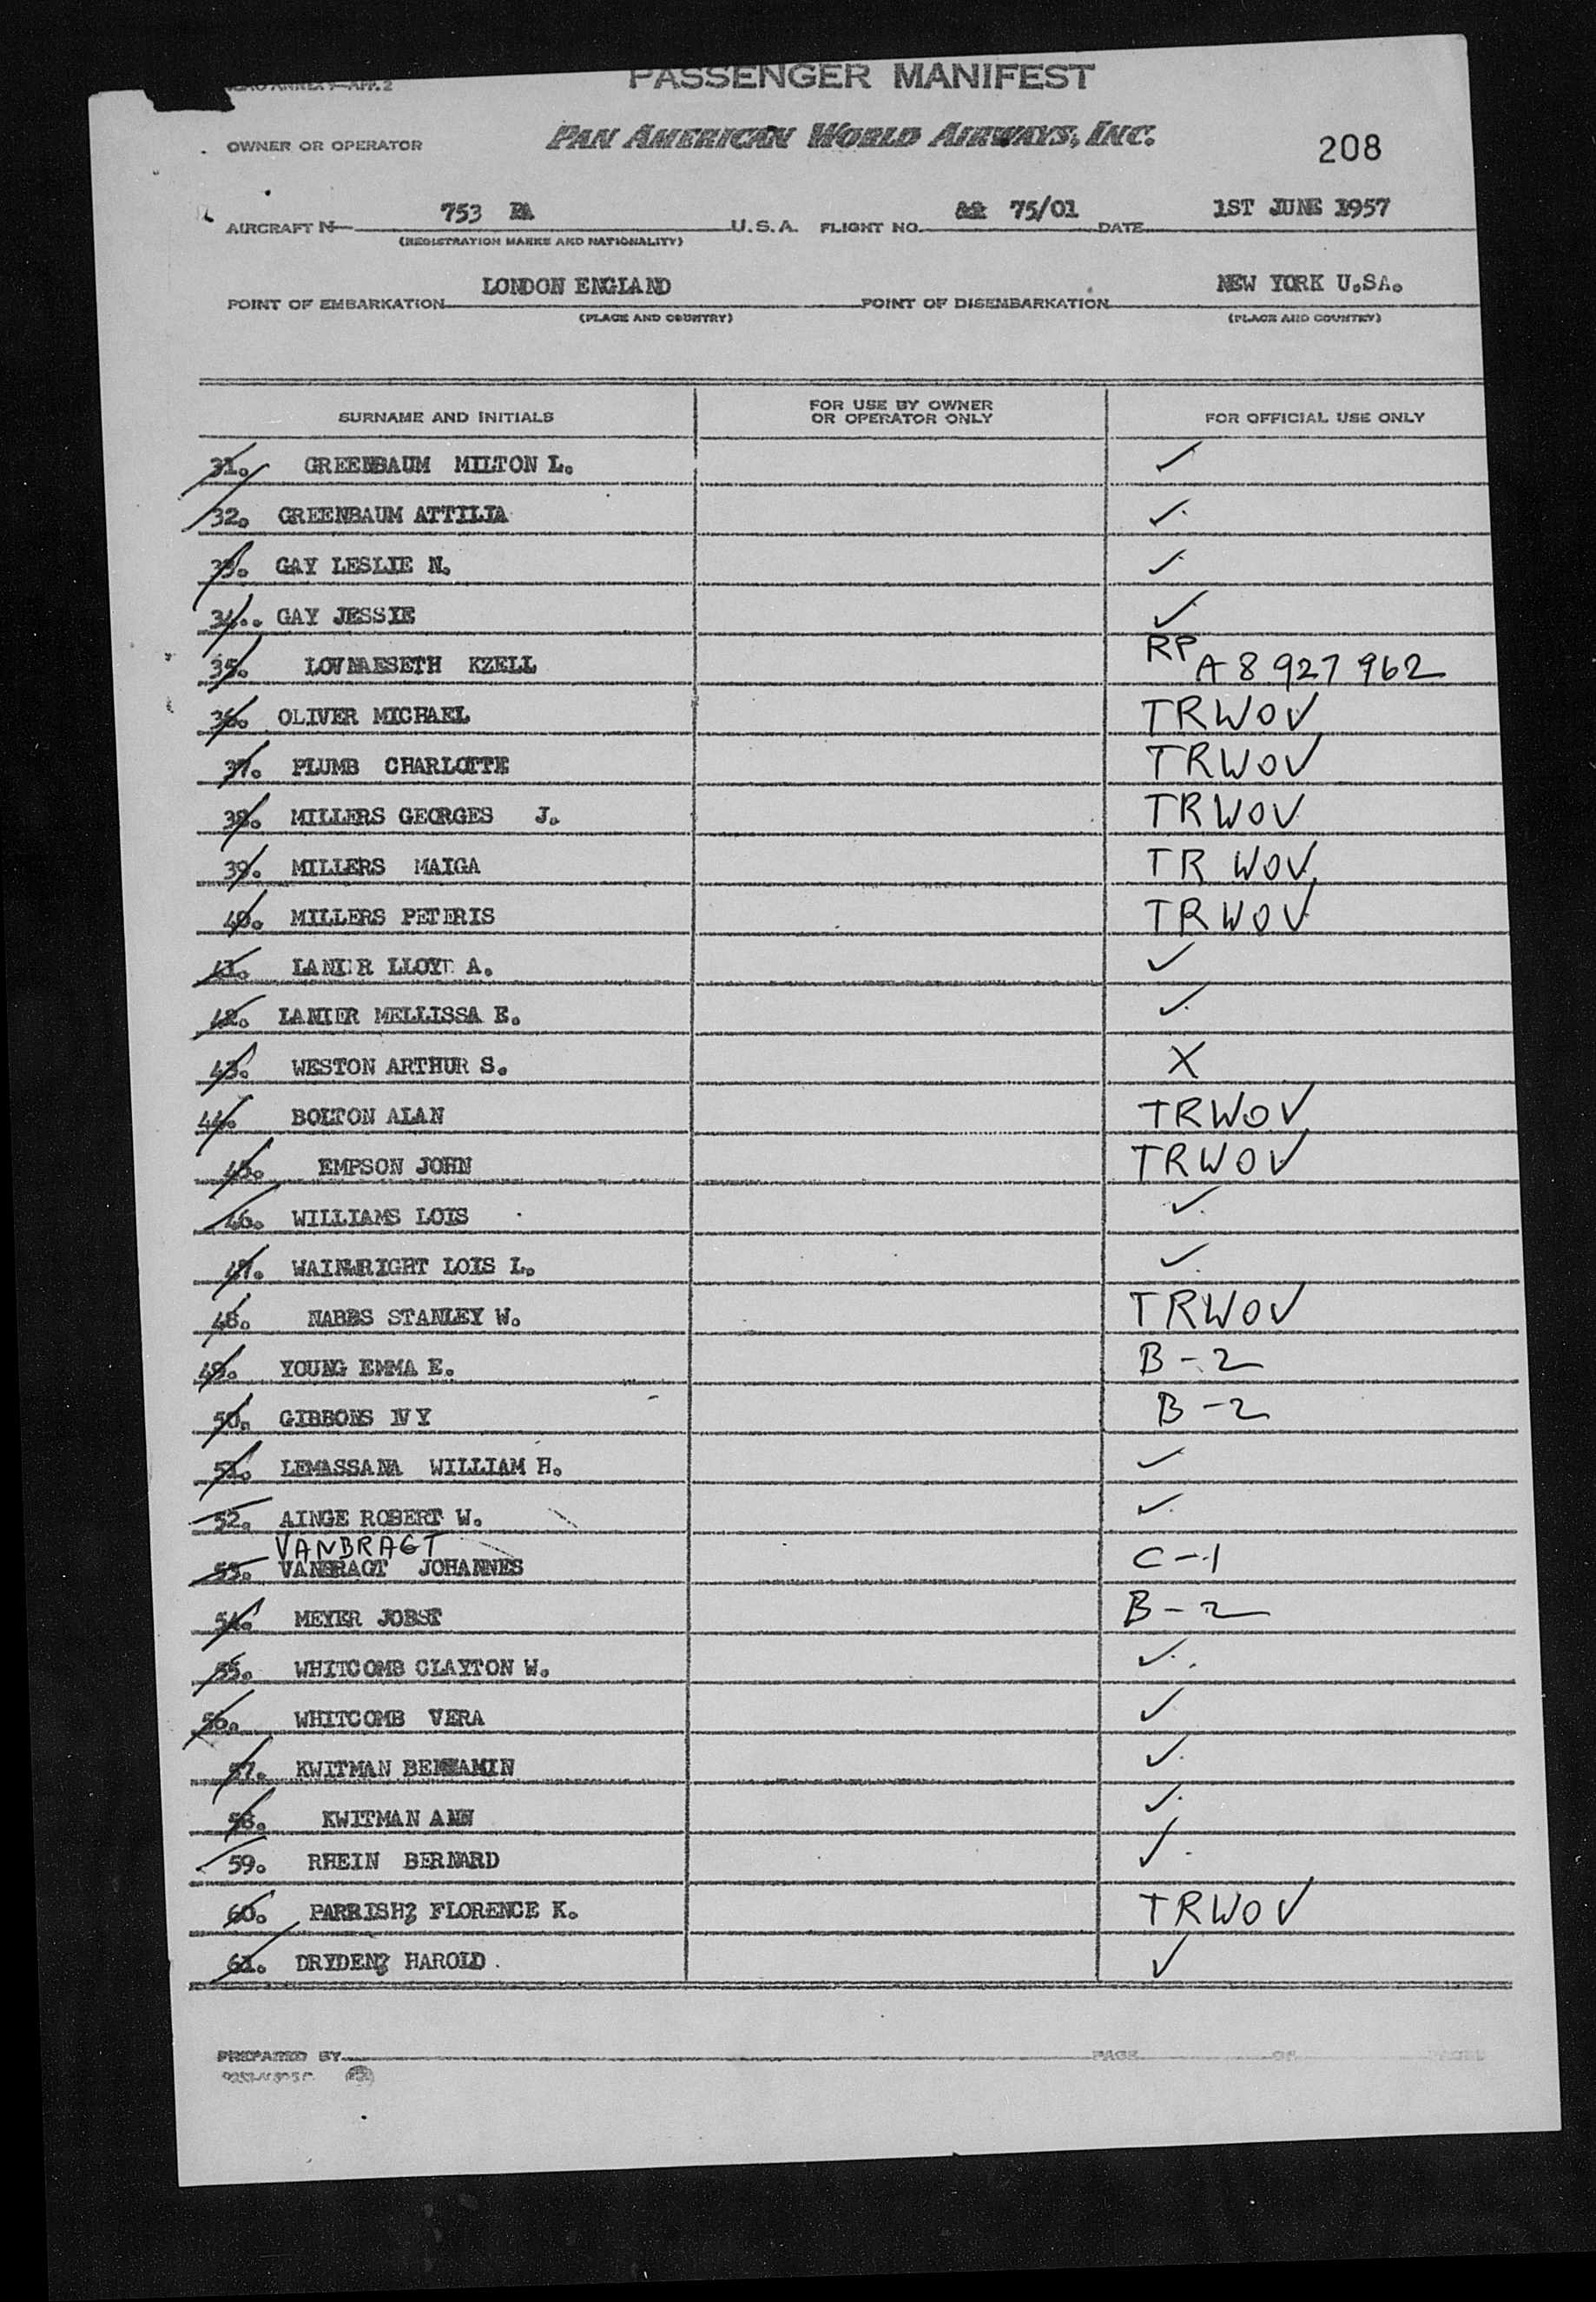 PASSENGER MANIFEST
OWNER OR OPERATOR PAN AMERICAN WORLD AIRWAYS, INC. 208
AIRCRAFT N 753 PA U.S.A. FLIGHT NO. 75/01 DATE 1ST JUNE 1957
(REGISTRATION MARKS AND NATIONALITY)
POINT OF EMBARKATION LONDON ENGLAND POINT OF DISEMBARKATION NEW YORK U.SA.
(PLACE AND COUNTRY) (PLACE AND COUNTRY)
SURNAME AND INITIALS FOR USE BY OWNER OR OPERATOR ONLY FOR OFFICIAL USE ONLY
31. GREENBAUM MILTON L. ✓
32. GREENBAUM ATTILIA ✓
33. GAY LESLIE N. ✓
34.. GAY JESSIE ✓
35. KZELL RP A 8 927 962
36. OLIVER MICHAEL TRWOV
37. PLUMB CHARLOTTE TRWOV
38. MILLERS GEORGES J. TRWOV
39. MILLERS MAIGA TR WOV
40. MILLERS PETERIS TRWOV
41. LANIER LLOYD A. ✓
42. LANIER MELLISSA E. ✓
43. WESTON ARTHUR S. X
44. BOLTON ALAN TRWOV
45. EMPSON JOHN TRWOV
46. WILLIAMS LOIS ✓
47. WAINWRIGHT LOIS L. ✓
48. NABBS STANLEY W. TRWOV
49. YOUNG EMMA E. B-2
50. GIBBONS IVY B-2
51. LEMASSANA WILLIAM H. ✓
52. AINGE ROBERT W. ✓
VANBRAGT
53. VANBRAGT JOHANNES C-1
54. MEYER JOBST B-2
55. WHITCOMB CLAYTON W. ✓
56. WHITCOMB VERA ✓
57. KWITMAN BENJAMIN ✓
58. KWITMAN ANN ✓
59. RHEIN BERNARD ✓
60. PARRISH; FLORENCE K. TRWOV
61. DRYDEN; HAROLD ✓
PREPARED BY PAGE OF PAGES